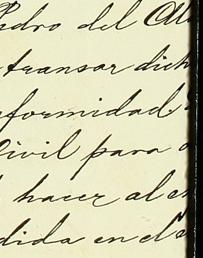 Pedro del Al
transar dich
formidad
Civil para
hacer al
dida en el